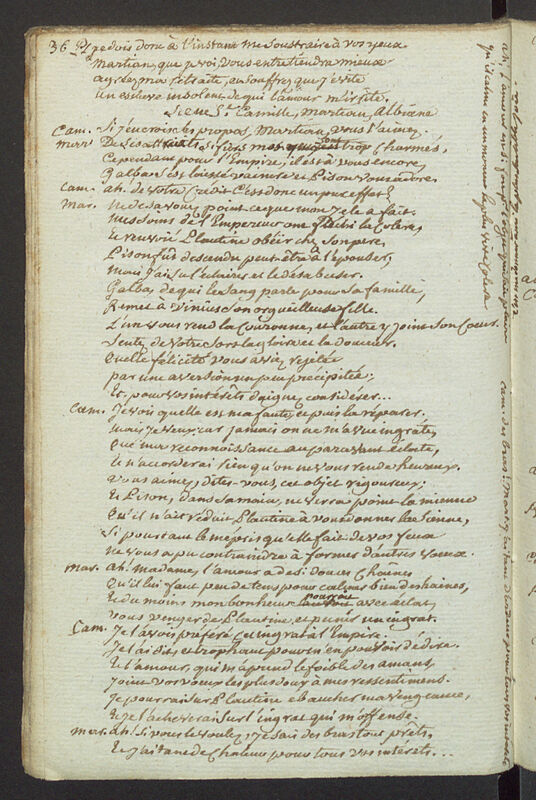 36
Je dois donc à l'instant me soustraire à vos yeux
Martian, que je vois, vous entretiendra mieux
agréez ma retraite, et souffrez que j'évite
un esclave insolent de qui l'amour m'irrite.
Scene 5e. Camille, Martian, Albiane
Cam. Si j'en crois les propos, Martian, vous l'aimez.
Mar. ses yeux sont trop charmés,
Cependant pour l'Empire, il est à vous encore,
Galba s'est laissé vaincre et Pison vous adore.
Cam. ah. de votre crédit c'est donc un pur effet?
Mar. Ne desavouez point ce que mon zele a fait.
Mes soins de l'Empereur ont fléchi la colere,
Et renvoié Plautine obéir chez son pere,
Pison fût descendu peut-être à l'épouser,
Mais j'ai su l'éclairer et le désabuser.
Galba, de qui le sang parle pour sa famille,
Remet à Vinius son orgueilleuse fille.
L'un vous rend la Couronne, et l'autre y joint son Coeur.
Sentez de votre sort la gloire et la douceur.
Quelle félicité vous aviez rejetée
par une aversion un peu précipitée;
Et, pour vos intérêts daignez considérer...
Cam. Je vois quelle est ma faute, et puis la réparer.
mais je veux, car jamais on ne m'a vue ingrate,
Que ma reconnoissance auparavant éclate,
Et n'accorderai rien qu'on ne vous rende heureux,
vous aimez, dites-vous, cet objet rigoureux;
Et Pison, dans sa main, ne verra point la mienne
Qu'il n'ait réduit Plautine à vous donner la sienne,
Si pourtant le mépris qu'elle fait de vos feux
ne vous a pu contraindre à former d'autres voeux.
Mar. ah. Madame, l'amour a de si douces chaines
Qu'il lui faut peu de tems pour calmer bien des haines,
Et du moins mon bonheur pourroit avec éclat,
vous venger de Plautine, et punir un ingrat.
Cam. Je l'avois préféré cet ingrat à l'Empire.
Je l'ai dit, et trop haut pour m'en pouvoir dédire.
Et l'amour, qui m'apprend le foible des amans,
Joint vos voeux les plus doux à mes ressentimens.
Je pourrai sur Plautine ébaucher ma vengeance,
Et je l'acheverai sur l'ingrat qui m'offense.
Mar. ah. si vous le voulez, je sais des bras tout prêts,
Et j'ai tant de chaleur pour tous vos intérêts....